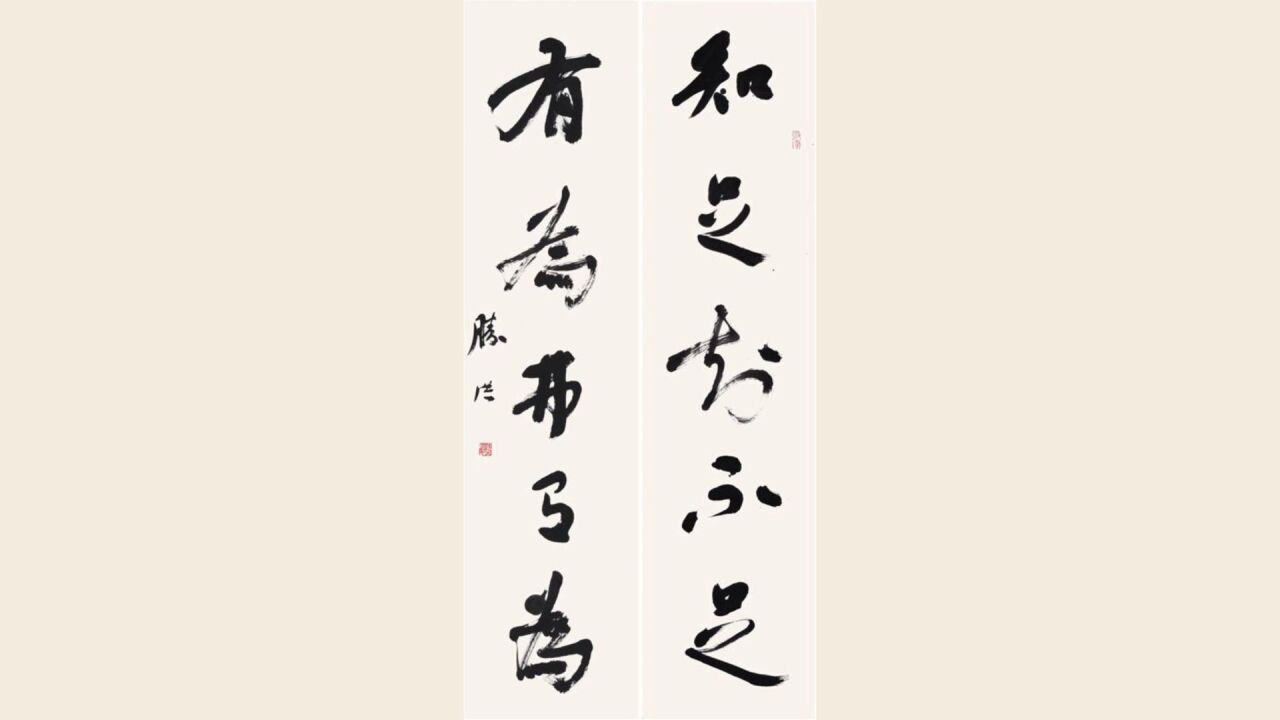 知足知不足
有為弗有為
勝洪